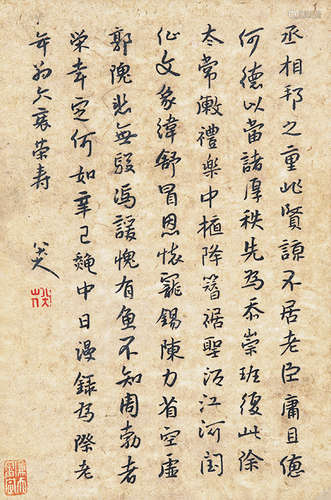 丞相邦之重非賢諒不居老臣庸且憊
何德以當諸厚秩先為忝崇班復此除
太常敷禮樂中植降簪裾聖酒江河潤
化文象緯舒冒恩懷寵錫陳力省空虛
郭隗慙無駿馮諼愧有魚不知周勃者
榮幸定何如辛巳中日漫錄為際老
年翁大衰榮壽
八大